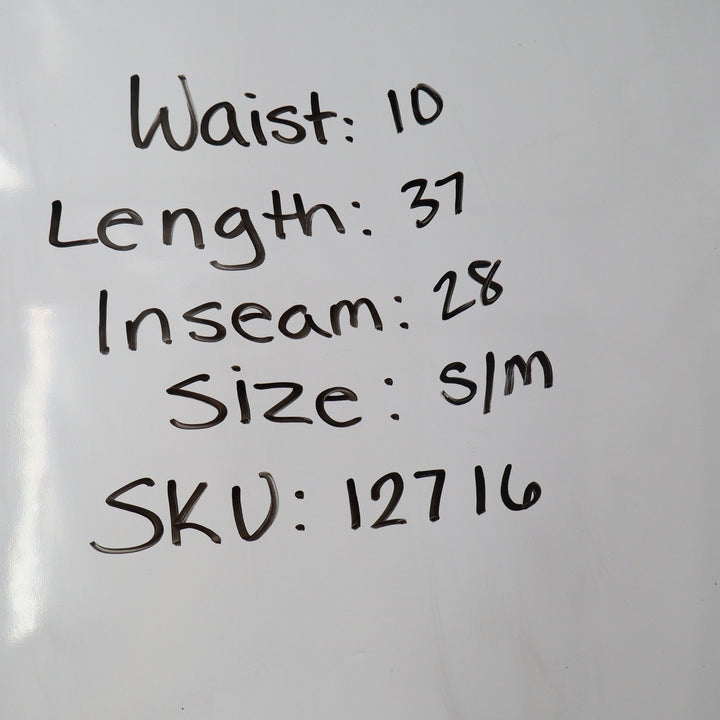 Waist: 10
Length: 37
Inseam: 28
Size: S/M
SKU: 12716